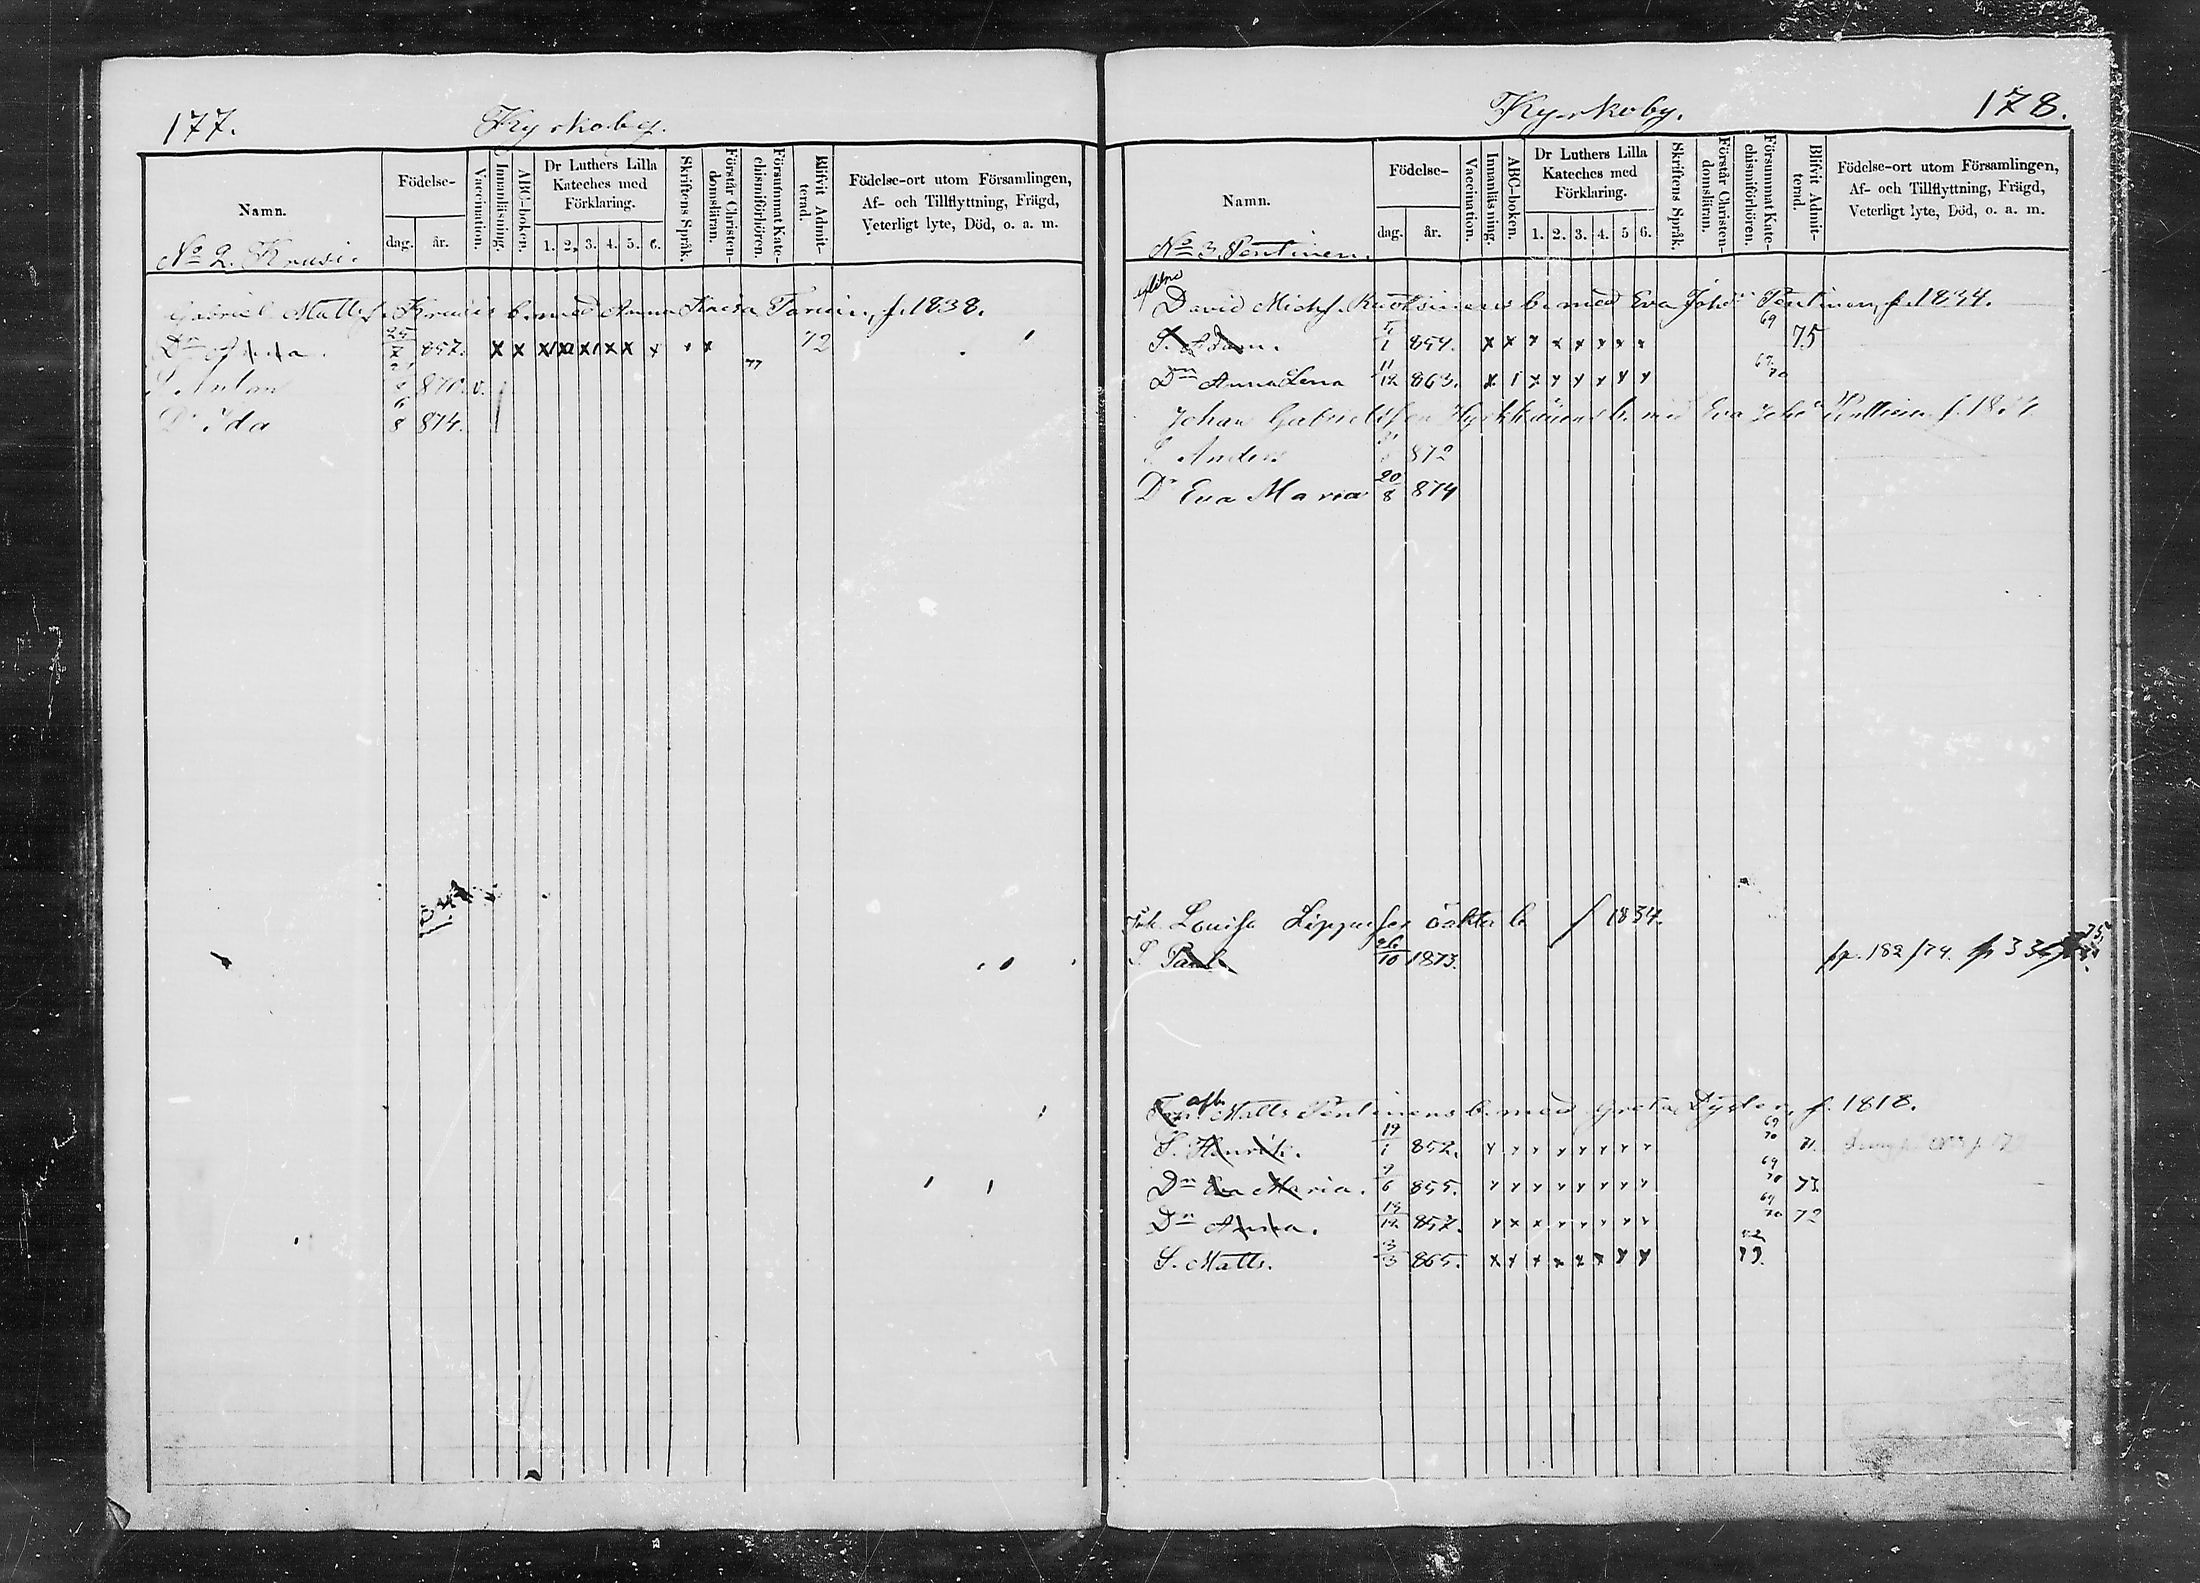 177.
Kyrkoby.
Namn.
Födelse-
dag.
år.
Vaccination.
Innanläsning.
ABC-boken.
Dr Luthers Lilla
Kateches med
Förklaring.
1. 2. 3. 4. 5. 6.
Skriftens Språk.
Förstår Christen-
domsläran.
Försummat Kate-
chismiförhören.
Blifvit Admit-
terad.
Födelse-ort utom Församlingen,
Af- och Tillflyttning, Frägd,
Veterligt lyte, Död, o. a. m.
No 2. Krusi.
Gabriel Mattsf. Krusis b. med Anna f. 1838.
Dr Anna. 25/7 857. x x x x x x x x x x x 72
77
S. Anton 870. v.
Dr Ida 6/8 874.
178.
Kyrkoby.
Namn.
Födelse-
dag.
år.
Vaccination.
Innanläsning.
ABC-boken.
Dr Luthers Lilla
Kateches med
Förklaring.
1. 2. 3. 4. 5 6.
Skriftens Språk.
Förstår Christen-
domsläran.
Försummat Kate-
chismiförhören.
Blifvit Admit-
terad.
Födelse-ort utom Församlingen,
Af- och Tillflyttning, Frägd,
Veterligt lyte, Död, o. a. m.
No 3. Pentinen.
David Michf. b. med Eva Johd Pentinen, f. 1834.
S. Adam. 857. x x x x x x x x 69 75
Dr Anna Lena 11/12 863. x 1 x x x x x x 69 70
Johan Gabrielsson b. med Eva Johd
S. Anders 872
Dr Eva Maria 20/8 874
Louisa b f 1834.
S. Paul. 26/10 1873. fr p. 182/74. p 33 75.
Matts Pentinens b. med Greta f. 1818.
S. Henrik. 19/1 852. x x x x x x x x 69 70 71.
Dr Eva Maria. 9/6 855. x x x x x x x x 69 70 73
Dr Anna. 857. x x x x x x x x 69 70 72
S. Matts. 3/3 865. x x x x x x x x